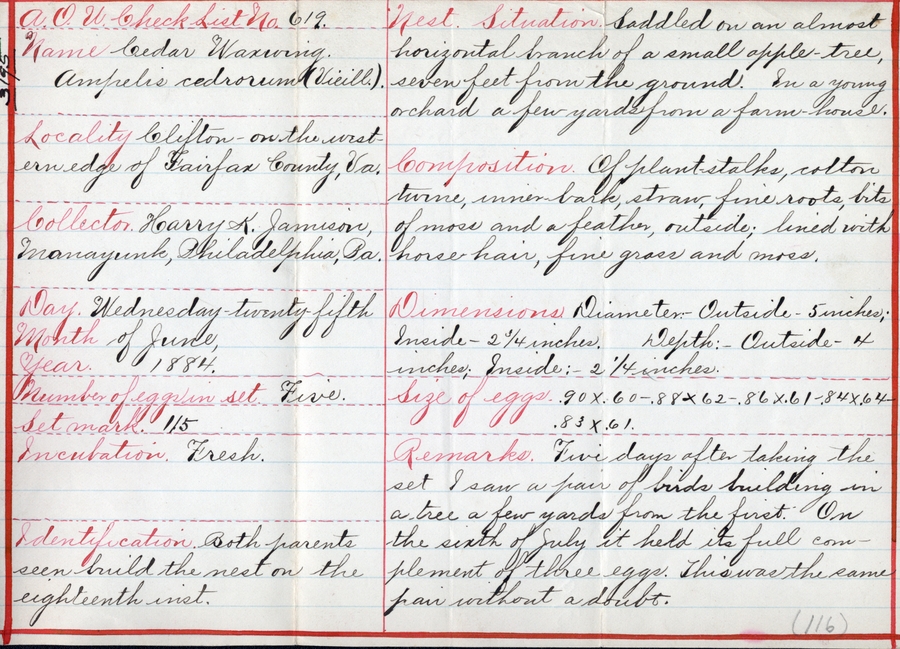 A. O. U. Check List No. 619.
Name Cedar Waxwing.
Ampelis cedrorum (Vieill.).
Locality Clifton - on the west-
ern edge of Fairfax County, Va.
Collector. Harry K. Jamison,
Manayunk, Philadelphia, Pa.
Day. Wednesday - twenty fifth
Month of June,
Year. 1884.
Number of eggs in set. Five.
Set mark. 1/5
Incubation. Fresh.
Identification. Both parents
seen build the nest on the
eighteenth inst.
Nest. Situation. Saddled on an almost
horizontal branch of a small apple-tree,
seven feet from the ground. In a young
orchard a few yards from a farm-house.
Composition. Of plant-stalks, cotton
twine, inner bark, straw, fine roots, bits
of moss and a feather, outside; lined with
horse hair, fine grass and moss.
Dimensions Diameter:- Outside - 5 inches;
Inside - 2 3/4 inches. Depth:- Outside - 4
inches; Inside:- 2 1/4 inches.
Size of eggs. .90 x .60 - .88 x 62 - .86 x .61 - .84 x 64 -
.83 x .61.
Remarks. Five days after taking the
set I saw a pair of birds building in
a tree a few yards from the first. On
the sixth of July it held its full com-
plement of three eggs. This was the same
pair without a doubt.
(116)